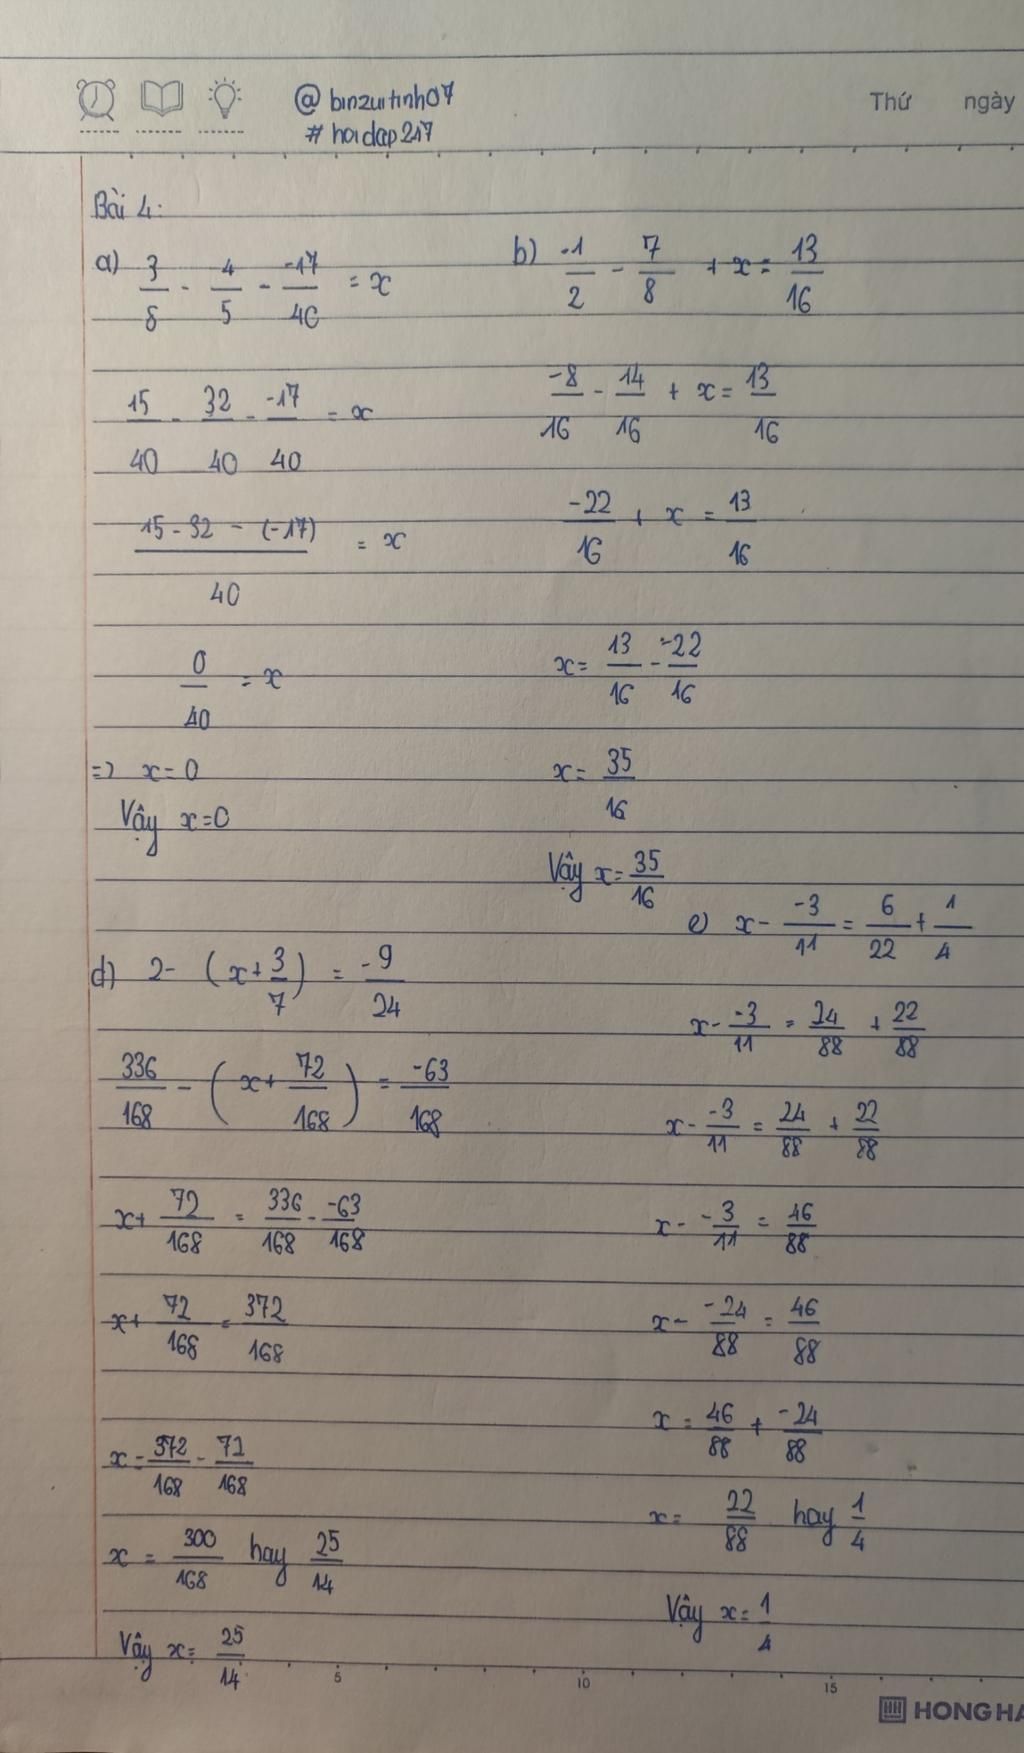 @ binzuitinh07
# hoidap247
Thứ ngày
Bài 4:
a) 3/8 - 4/5 - -17/40 = x
15/40 - 32/40 - -17/40 = x
15 - 32 - (-17)/40 = x
0/40 = x
=> x = 0
Vậy x = 0
b) -1/2 - 7/8 + x = 13/16
-8/16 - 14/16 + x = 13/16
-22/16 + x = 13/16
x = 13/16 - -22/16
x = 35/16
Vậy x = 35/16
d) 2 - (x + 3/7) = -9/24
336/168 - (x + 72/168) = -63/168
x + 72/168 = 336/168 - -63/168
x + 72/168 = 372/168
x = 372/168 - 72/168
x = 300/168 hay 25/14
Vậy x = 25/14
e) x - -3/11 = 6/22 + 1/4
x - -3/11 = 24/88 + 22/88
x - -3/11 = 24/88 + 22/88
x - -3/11 = 46/88
x - -24/88 = 46/88
x = 46/88 + -24/88
x = 22/88 hay 1/4
Vậy x = 1/4
5 10 15
HONG HA